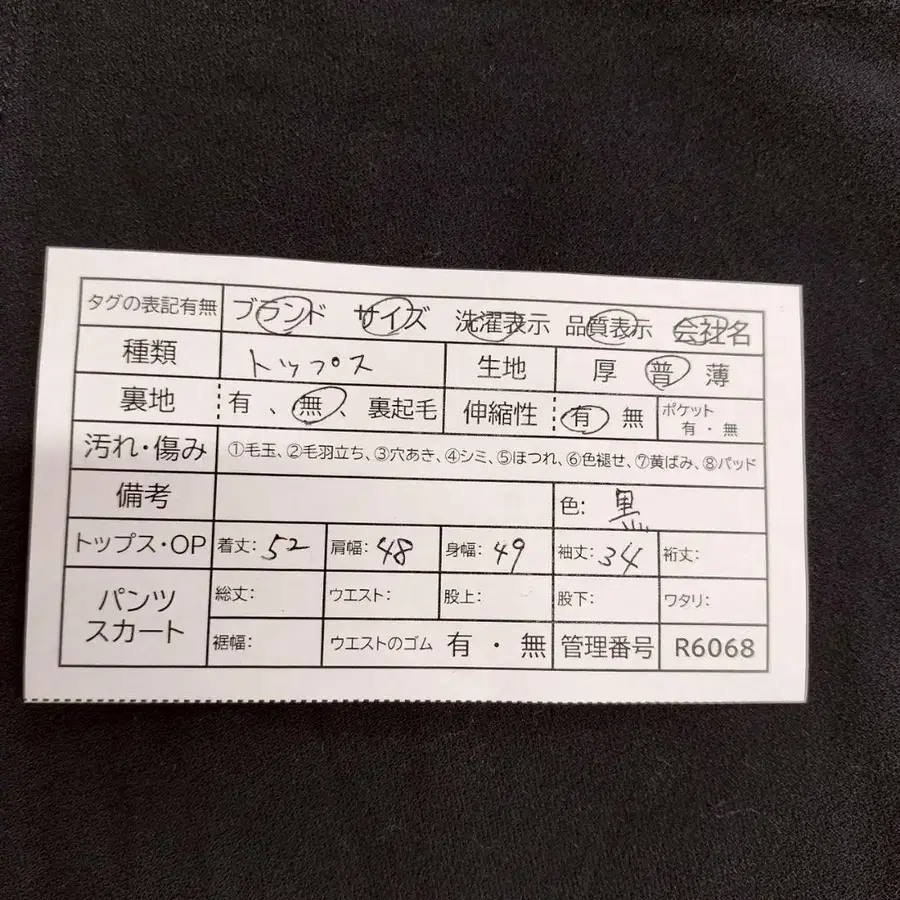 タグの表記有無 ブランド サイズ 洗濯表示 品質表示 会社名
種類 トップス 生地 厚 普 薄
裏地 有、無、裏起毛 伸縮性 有 無 ポケット 有・無
汚れ・傷み ①毛玉、②毛羽立ち、③穴あき、④シミ、⑤ほつれ、⑥色褪せ、⑦黄ばみ、⑧パッド
備考 色: 黒
トップス・OP 着丈: 52 肩幅: 48 身幅: 49 袖丈: 34 裄丈:
パンツ スカート 総丈: ウエスト: 股上: 股下: ワタリ:
裾幅: ウエストのゴム 有・無 管理番号 R6068